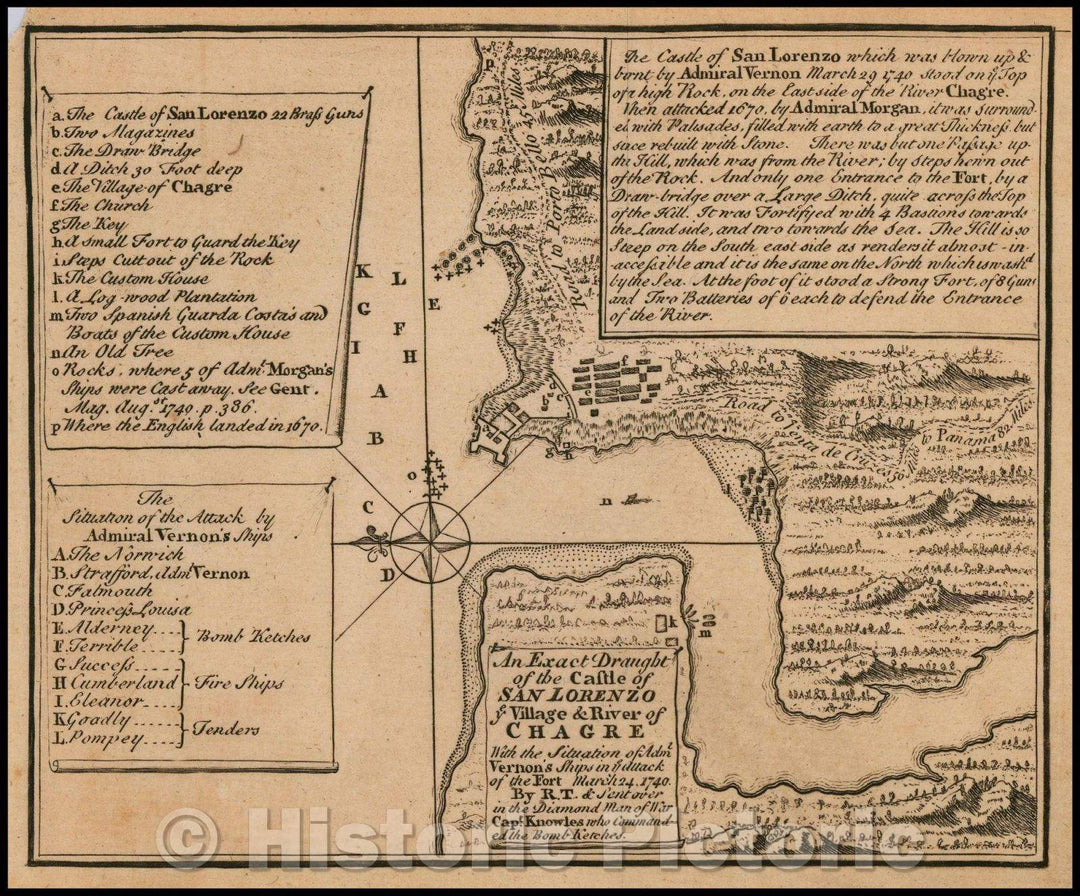 a. The Castle of San Lorenzo 22 Brass Guns
b. Two Magazines
c. The Draw Bridge
d. A Ditch 30 Foot deep
e. The Village of Chagre
f. The Church
g. The Key
h. A small Fort to Guard the Key
i. Steps Cutt out of the Rock
k. The Custom House
l. A Log-wood Plantation
m. Two Spanish Guarda Costa's and
Boats of the Custom House
n. An Old Tree
o. Rocks, where 5 of Admˡ Morgan's
Ships were Cast away. See Gent.
Mag. Augˢᵗ 1740. p. 386.
p. Where the English landed in 1670.
The Castle of San Lorenzo which was blown up &
burnt by Admiral Vernon March 29 1740 stood on yᵉ Top
of a high Rock, on the East side of the River Chagre.
When attacked 1670, by Admiral Morgan, it was surround-
ed with Palisades, filled with earth to a great Thickness but
since rebuilt with Stone. There was but one Passage up
the Hill, which was from the River; by steps hewn out
of the Rock. And only one Entrance to the Fort, by a
Draw-bridge over a Large Ditch, quite across the Top
of the Hill. It was Fortifyed with 4 Bastions towards
the Land side, and two towards the Sea. The Hill is so
Steep on the South east side as renders it almost in-
accessible and it is the same on the North which is wash'd
by the Sea. At the foot of it stood a Strong Fort, of 8 Guns
and Two Batteries of 6 each to defend the Entrance
of the River.
The
Situation of the Attack by
Admiral Vernon's Ships
A. The Norwich
B. Strafford, Admˡ Vernon
C. Falmouth
D. Princess Louisa
E. Alderney
F. Terrible
Bomb Ketches
G. Success
H. Cumberland
I. Eleanor
Fire Ships
K. Goadly
L. Pompey
Tenders
p
Road to Porto Bello 45 Miles
K
L
G
E
F
I
H
A
B
C
D
o
f
e
d
c
b
a
i
g
h
n
l
k
m
Road to Venta de Cruzes 50 Miles
to Panama 82 Miles
An Exact Draught
of the Castle of
SAN LORENZO
yᵉ Village & River of
CHAGRE
With the Situation of Admˡ
Vernon's Ships in yᵉ Attack
of the Fort March 24. 1740.
By R.T. & Sent over
in the Diamond Man of War
Capᵗ Knowles who Command-
ed the Bomb Ketches.